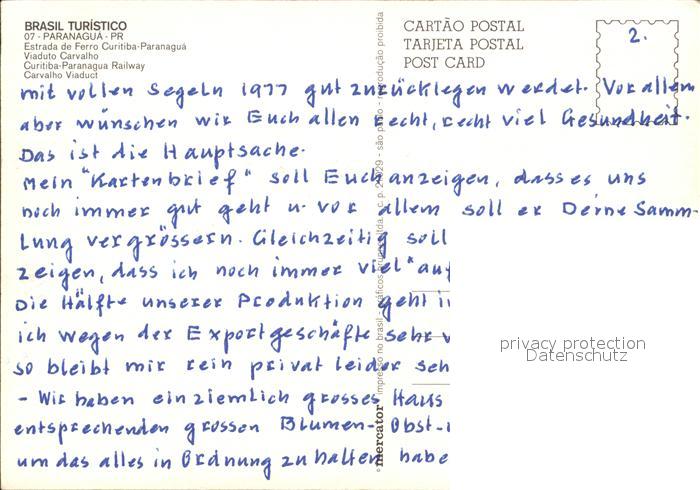 BRASIL TURÍSTICO
07 - PARANAGUÁ - PR
Estrada de Ferro Curitiba-Paranaguá
Viaduto Carvalho
Curitiba-Paranagua Railway
Carvalho Viaduct
CARTÃO POSTAL
TARJETA POSTAL
POST CARD
2.
mit vollen Segeln 1977 gut zurücklegen werdet. Vor allem
aber wünschen wir Euch allen recht, recht viel Gesundheit.
Das ist die Hauptsache.
Mein "Kartenbrief" soll Euch anzeigen, dass es uns
noch immer gut geht u. vor allem soll er Deine Samm-
lung vergrössern. Gleichzeitig soll
zeigen, dass ich noch immer viel "auf
Die Hälfte unserer Produktion geht in
ich wegen der Exportgeschäfte sehr v
so bleibt mir rein privat leider seh
- Wir haben ein ziemlich grosses Haus
entsprechenden grossen Blumen- Obst-
um das alles in Ordnung zu halten habe
mercator
impresso no brasil
são paulo - reprodução proibida
privacy protection
Datenschutz